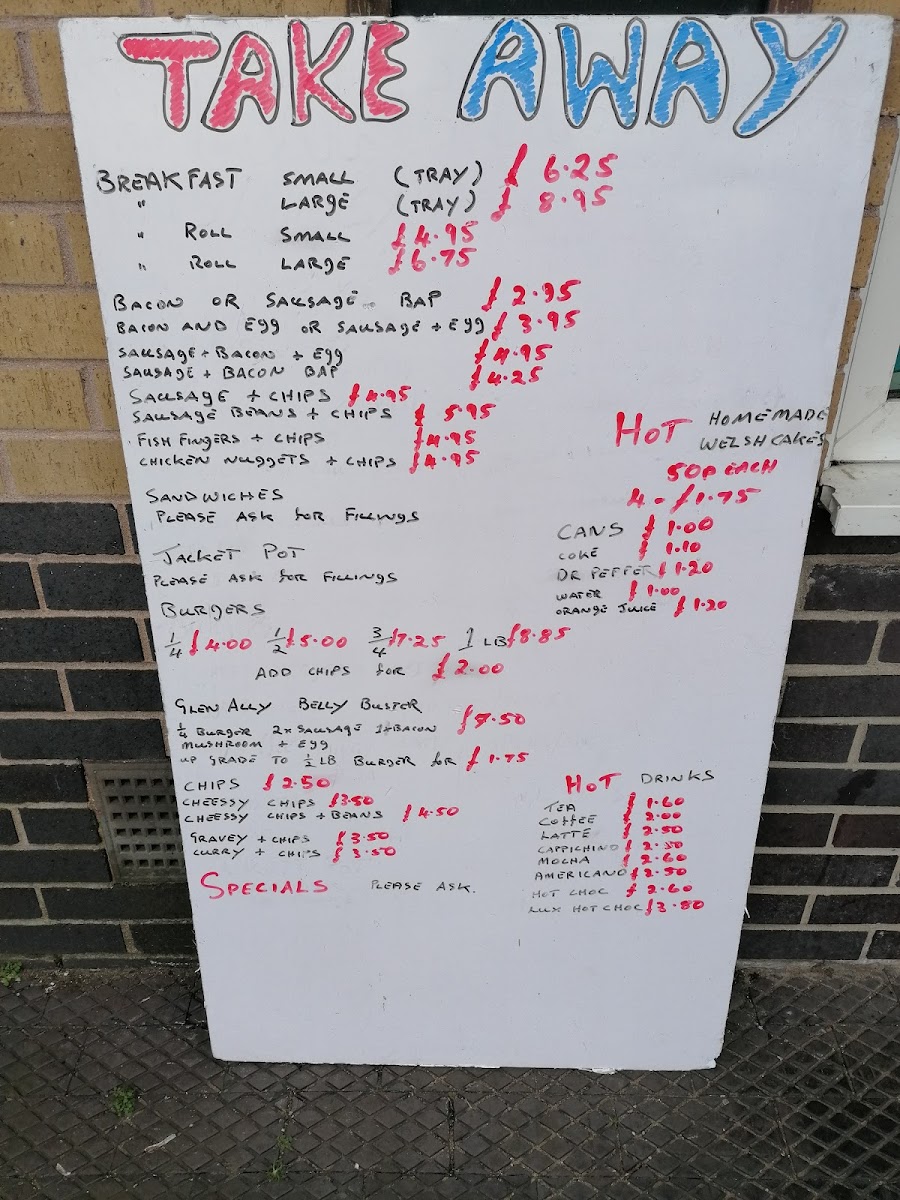 TAKE AWAY
BREAKFAST SMALL (TRAY) £ 6.25
" LARGE (TRAY) £ 8.95
" ROLL SMALL £4.95
" ROLL LARGE £6.75
BACON OR SAUSAGE BAP £2.95
BACON AND EGG OR SAUSAGE + EGG £3.95
SAUSAGE + BACON + EGG £4.95
SAUSAGE + BACON BAP £4.25
SAUSAGE + CHIPS £4.95
SAUSAGE BEANS + CHIPS £ 5.95
FISH FINGERS + CHIPS £4.95
CHICKEN NUGGETS + CHIPS £4.95
HOT HOMEMADE
WELSH CAKES
50P EACH
4 - £1.75
SANDWICHES
PLEASE ASK FOR FILLINGS
JACKET POT
PLEASE ASK FOR FILLINGS
CANS £ 1.00
COKE £ 1.10
DR PEPPER £1.20
WATER £1.00
ORANGE JUICE £1.20
BURGERS
1/4 £4.00 1/2 £5.00 3/4 £7.25 1 LB £8.85
ADD CHIPS FOR £2.00
GLENALLY BELLY BUSTER
1/4 BURGER 2x SAUSAGE 1x BACON £7.50
MUSHROOM + EGG
UP GRADE TO 1/2 LB BURGER FOR £1.75
CHIPS £2.50
CHEESSY CHIPS £3.50
CHEESSY CHIPS + BEANS £4.50
GRAVEY + CHIPS £3.50
CURRY + CHIPS £3.50
HOT DRINKS
TEA £1.60
COFFEE £2.00
LATTE £2.50
CAPPICHINO £2.50
MOCHA £2.60
AMERICANO £2.50
HOT CHOC £2.60
LUX HOT CHOC £3.80
SPECIALS PLEASE ASK.